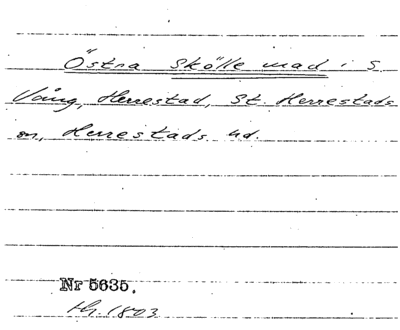 Östra Skölle mad i S.
Vång, Herrestad, St. Herrestads
sn, Herrestads hd.
Nr 5635.
1803